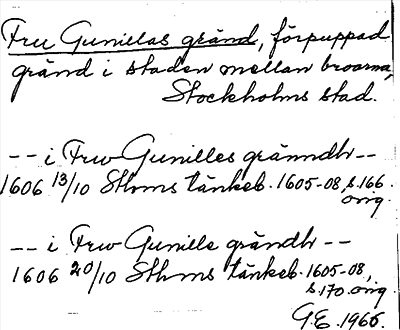 Fru Gunillas gränd, förpuppad
gränd i staden mellan broarna,
Stockholms stad.
-- i Frw Gunilles gränndh --
1606 13/10 Sthms tänkeb. 1605-08, s. 166.
orig.
-- i Frw Gunille grändh --
1606 20/10 Sthms tänkeb. 1605-08,
s. 170. orig.
G.E. 1966.